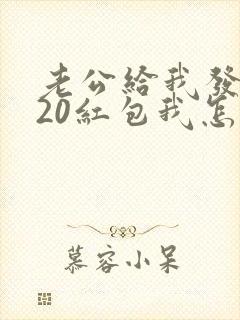 老公給我發
20紅包我怎
慕容小呆